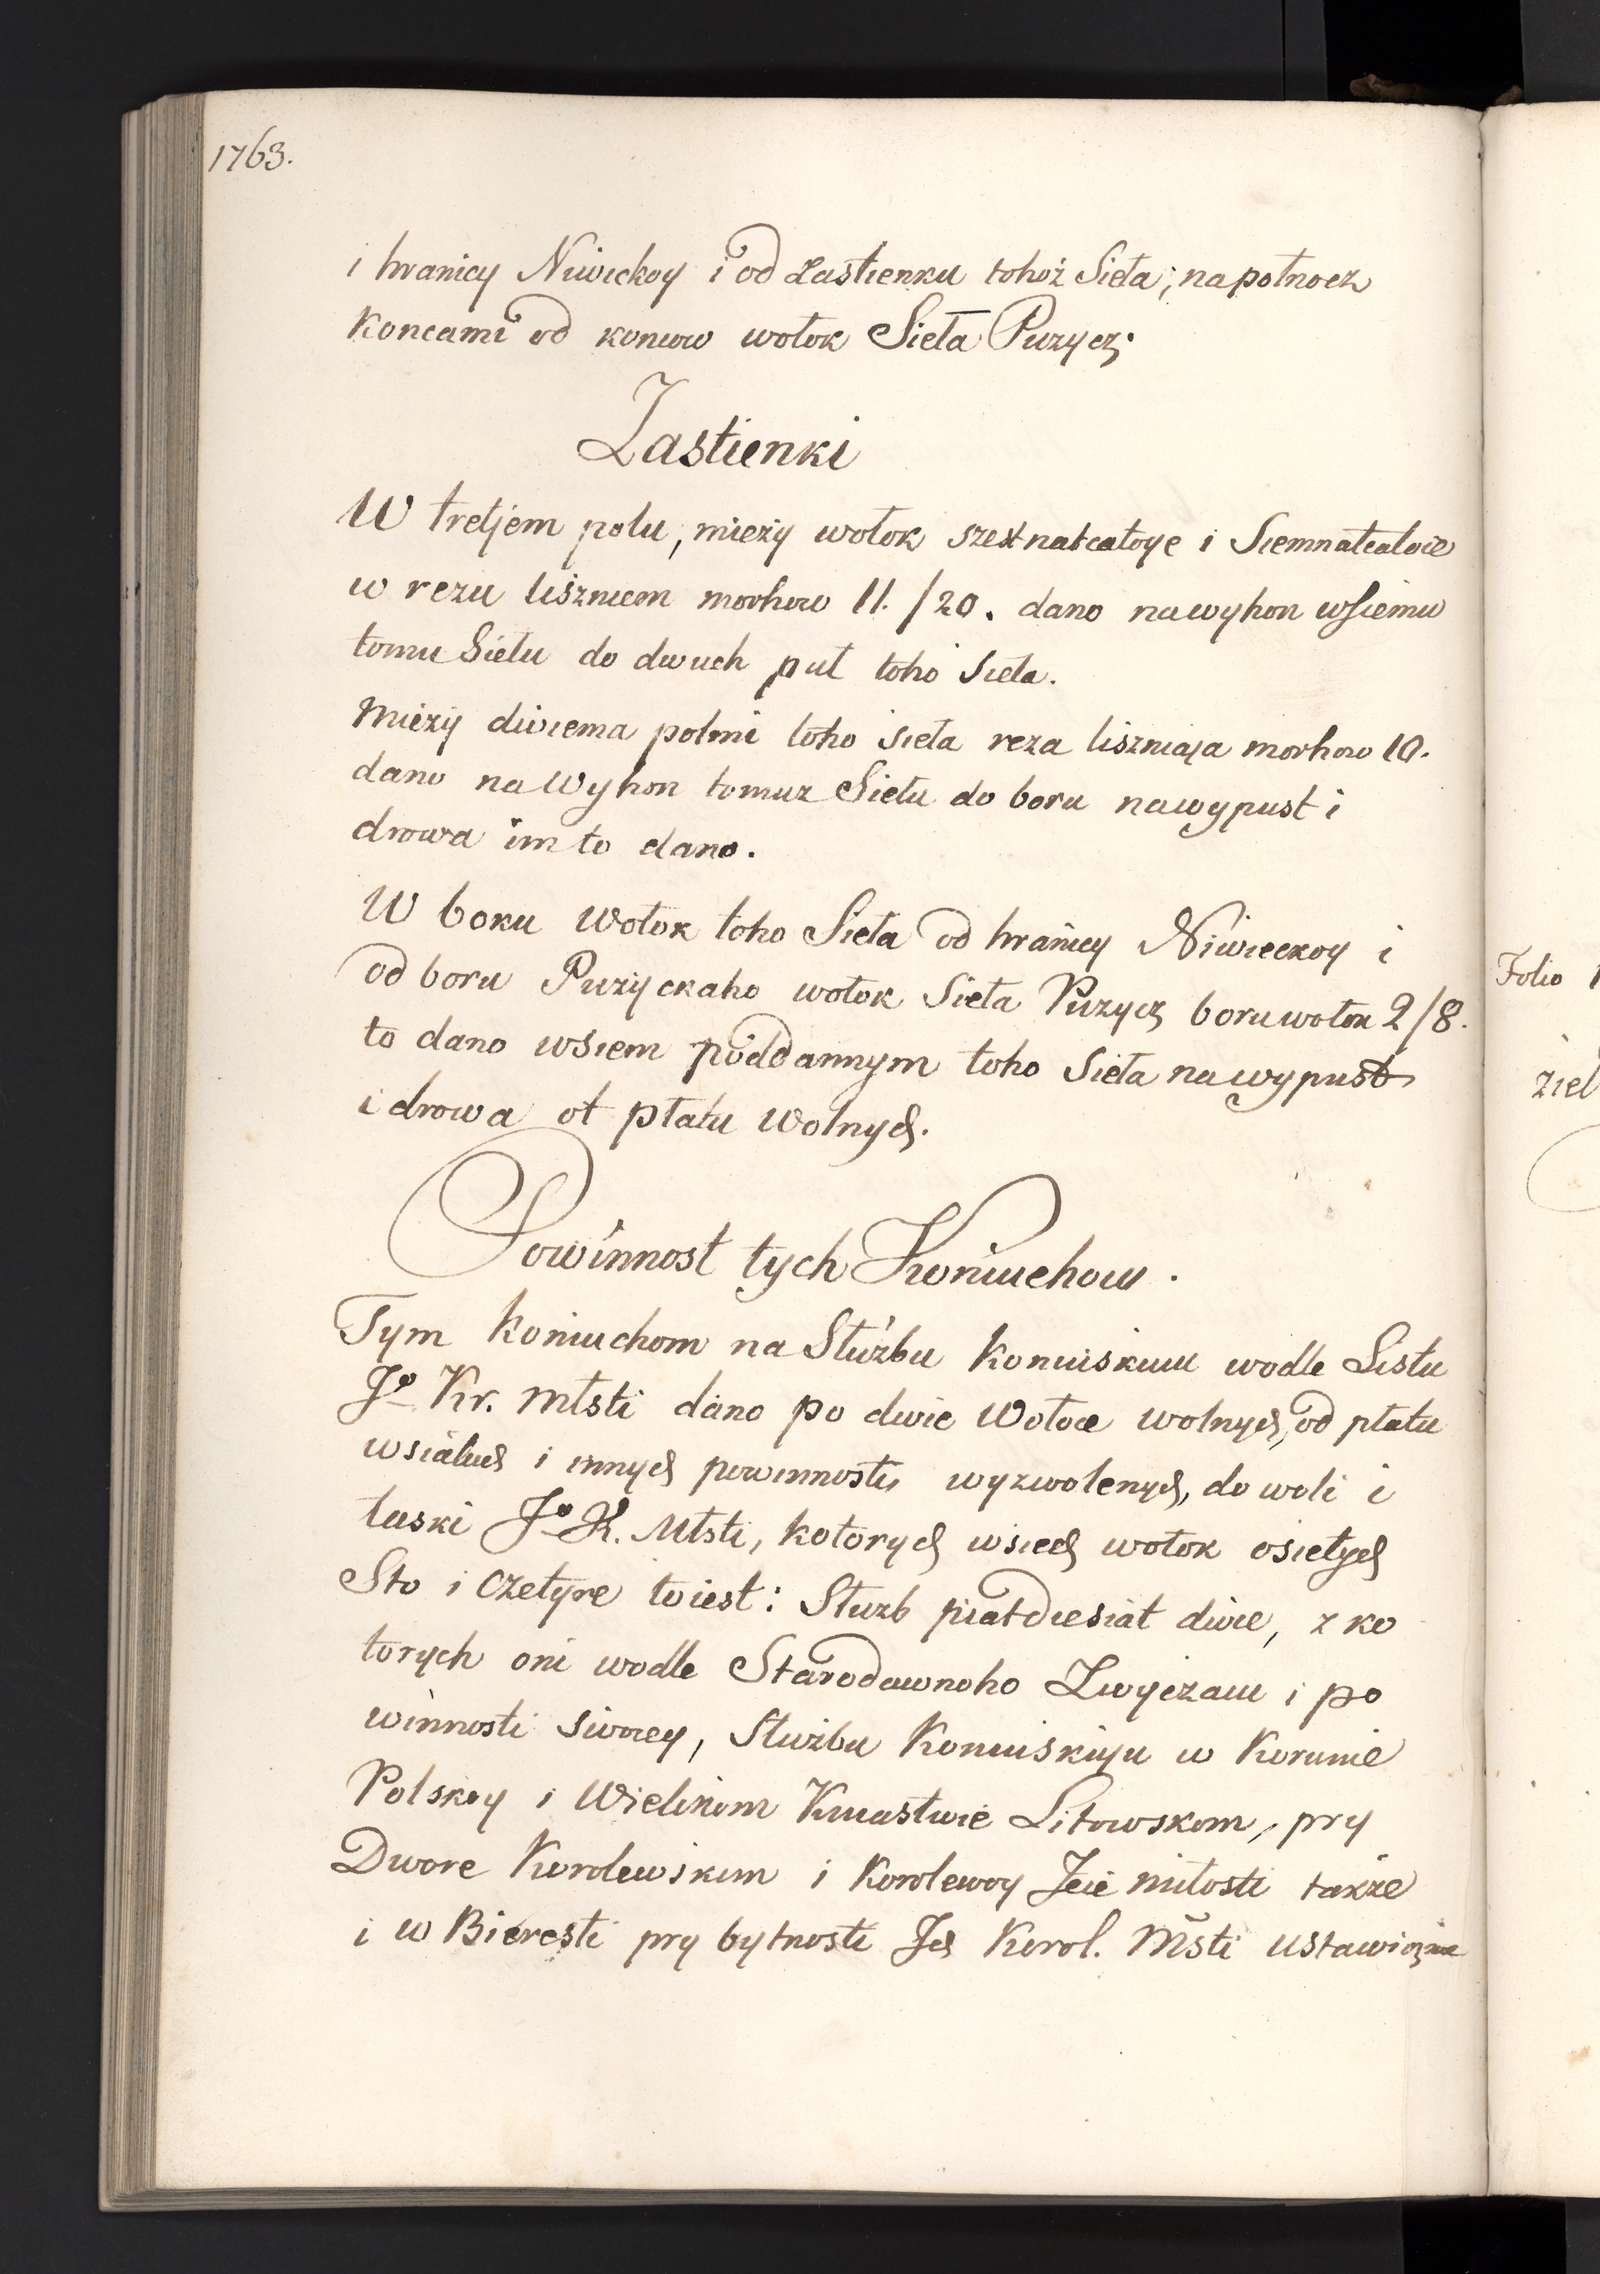 1763.
i hranicy Niwickoy i od Zastienku tohoż Sieła; na połnocz
Koncami od koncow wołok Sieła Puzycz;
Zastienki
W tretjem polu, mieży wołok szestnatcatoye i Siemnatcatoie
w rezu liszniem morhow 11./20. dano na wyhon wsiemu
tomu Siełu do dwuch pul toho sieła.
Mieży dwiema polmi toho sieła reza liszniaja morhow 10.
dano na Wyhon tomuz Siełu do boru na wypust i
drowa im to dano.
W boku Wołok toho Sieła od hranicy Niwieckoy i
od boru Puzyckaho wołok Sieła Puzycz boru wołok 2/8.
to dano wsiem poddannym toho Sieła na wypust
i drowa ot płatu Wolnych.
Powinnost tych Koniuchow.
Tym Koniuchom na Służbu Koniuskuiu wodle Listu
Jº Kr. Młsti dano po dwie Wołoce wolnych, od płatu
wsiakich i innych powinnosti wyzwolenych, do woli i
łaski Jº K. Młsti, kotorych wsiech wołok osiełych
Sto i czetyre to iest: Służb piatdiesiat dwie, z ko
torych oni wodle Starodawnoho Zwyczaiu i po
winnosti swoiey, Służbu Koniuskuju w Korunie
Polskoy i Wielikom Kniastwie Litowskom, pry
Dwore Korolewskim i Korolewoy Jeie miłosti także
i w Bieresti pry bytnosti Jch Korol. Młsti ustawicznie
Folio 1
ziel